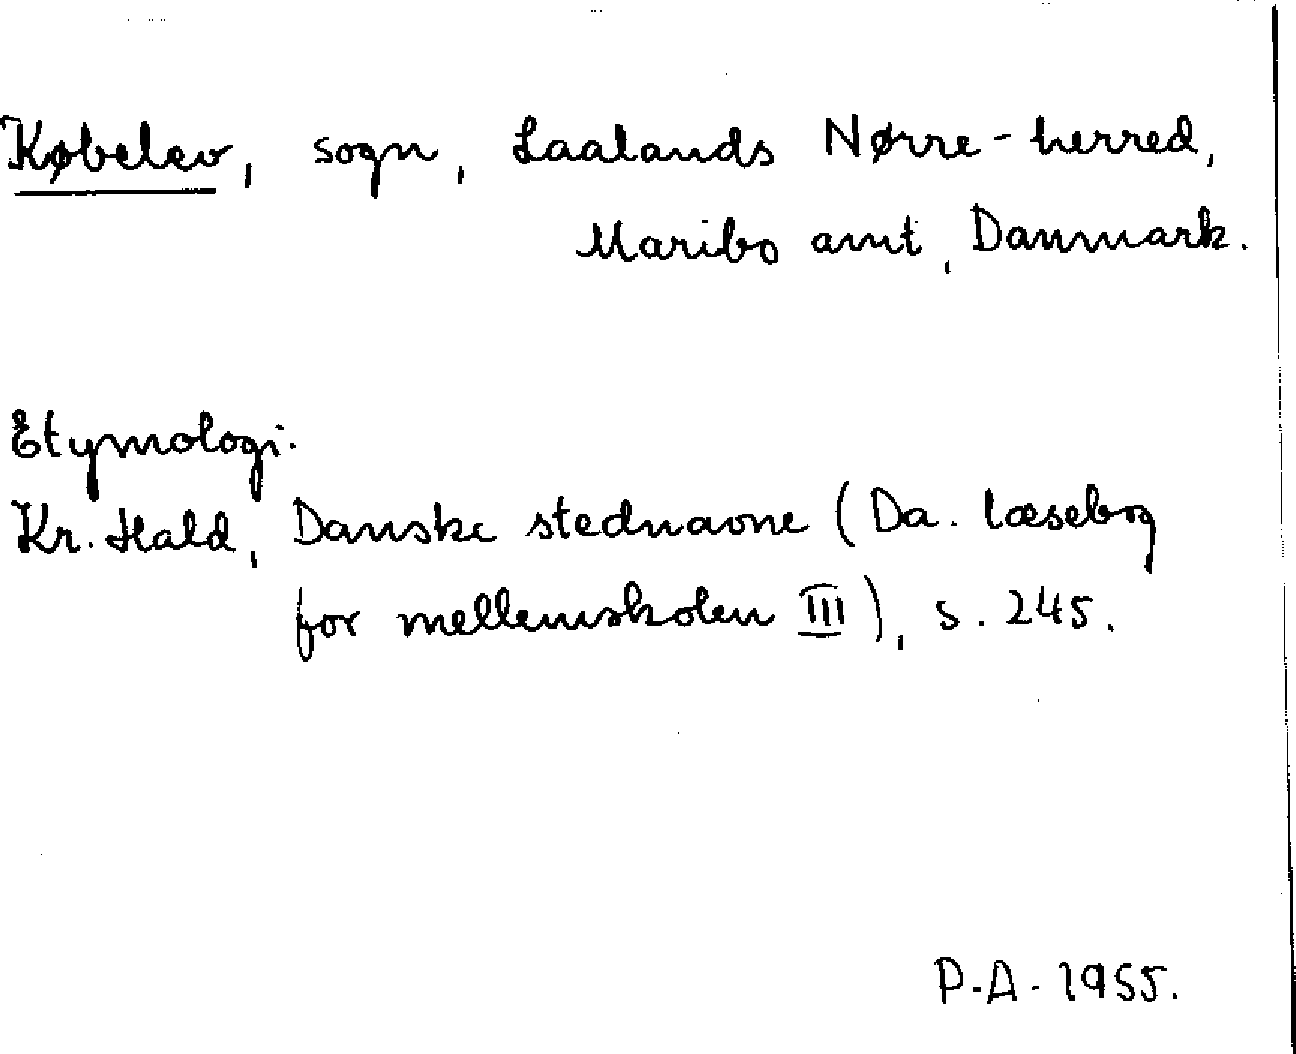 Købelev, sogn, Laalands Nørre-herred,
Maribo amt, Danmark.
Etymologi.
Kr. Hald, Danske stednavne (Da. læsebog
for mellemskolen III), s. 245.
P.A. 1955.